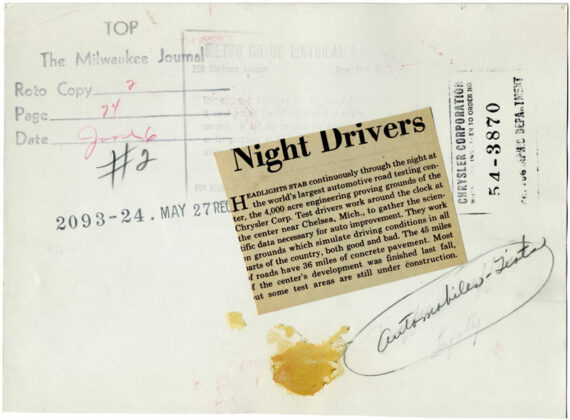 TOP
The Milwaukee Journal
Roto Copy 2
Page 24
Date June 6
#2
2093-24. MAY 27 REL
Night Drivers
HEADLIGHTS STAR continuously through the night at
the world's largest automotive road testing cen-
ter, the 4,000 acre engineering proving grounds of the
Chrysler Corp. Test drivers work around the clock at
the center near Chelsea, Mich., to gather the scien-
tific data necessary for auto improvement. They work
on grounds which simulate driving conditions in all
parts of the country, both good and bad. The 45 miles
of roads have 36 miles of concrete pavement. Most
of the center's development was finished last fall,
but some test areas are still under construction.
CHRYSLER CORPORATION
TO ORDER NO
54-3870
PHOTOGRAPHIC DEPARTMENT
Automobiles-Tests